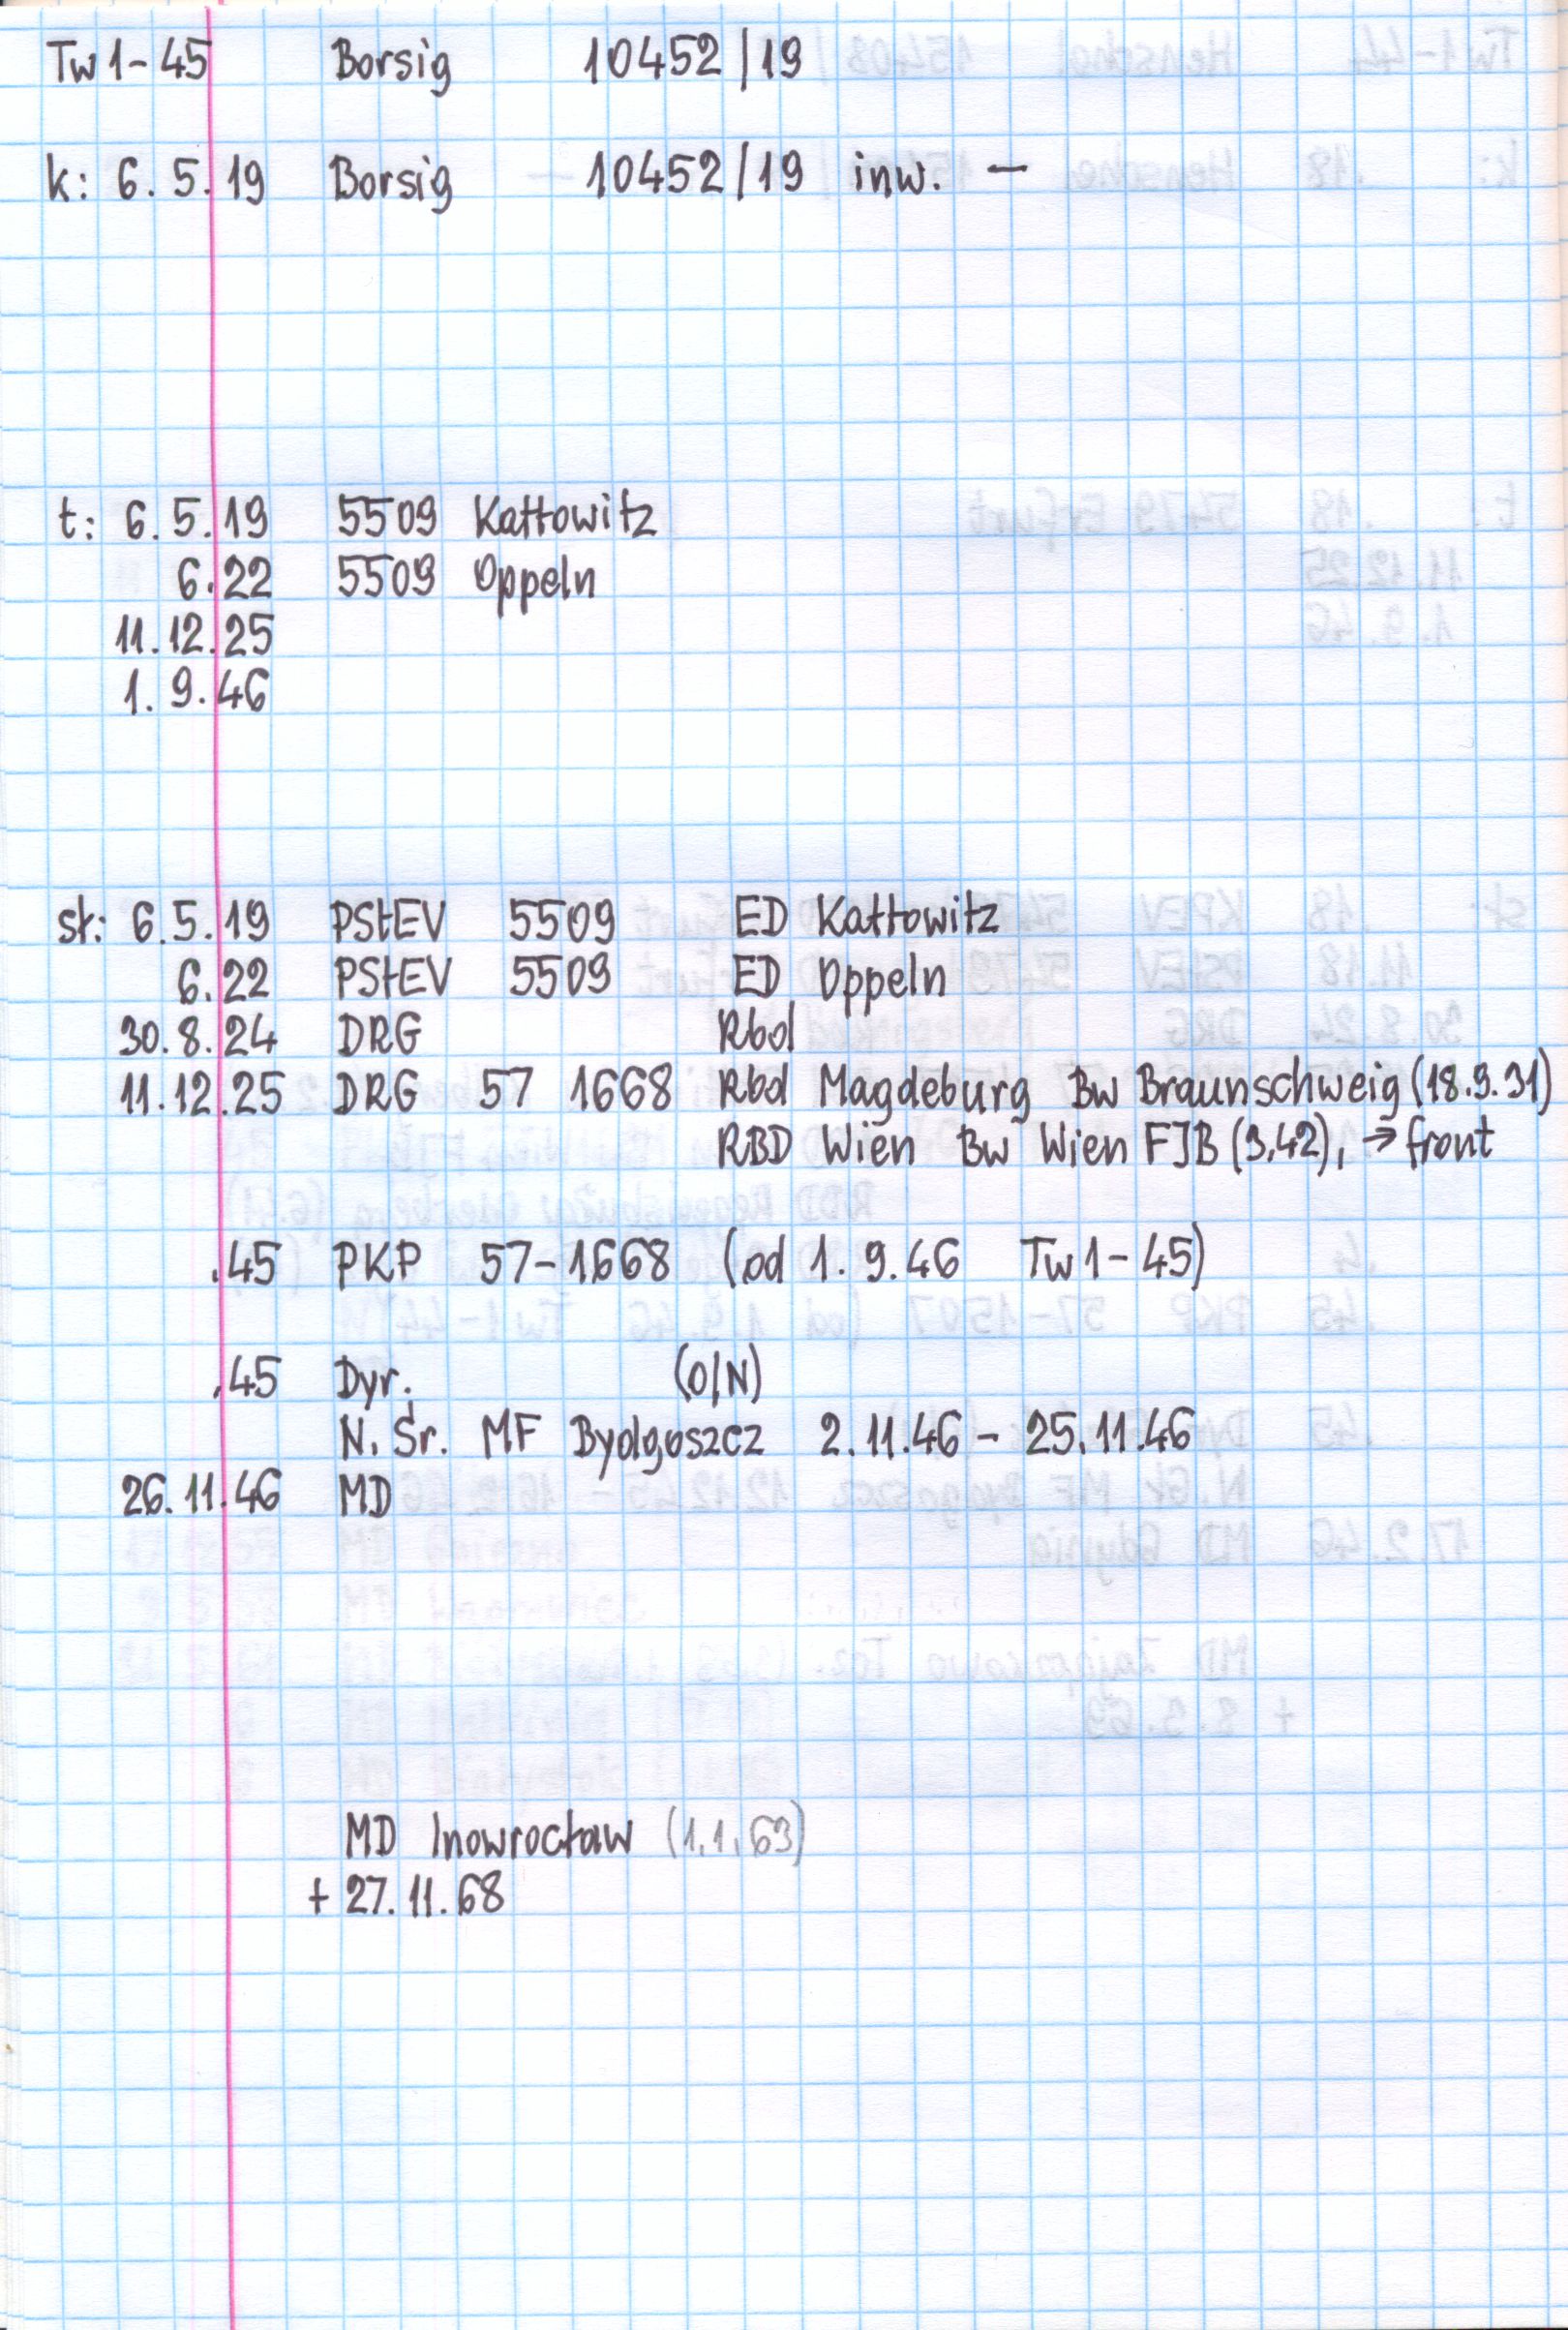 Tw1-45 Borsig 10452/19
k: 6.5.19 Borsig 10452/19 inw. —
t: 6.5.19 5509 Kattowitz
6.22 5509 Oppeln
11.12.25
1.9.46
st: 6.5.19 PStEV 5509 ED Kattowitz
6.22 PStEV 5509 ED Oppeln
30.8.24 DRG Rbd
11.12.25 DRG 57 1668 Rbd Magdeburg Bw Braunschweig (18.9.31)
RBD Wien Bw Wien FJB (3.42), → front
.45 PKP 57-1668 (od 1.9.46 Tw1-45)
.45 Dyr. (O/N)
N. Śr. MF Bydgoszcz 2.11.46 - 25.11.46
26.11.46 MD
MD Inowrocław (1.1.63)
+ 27.11.68